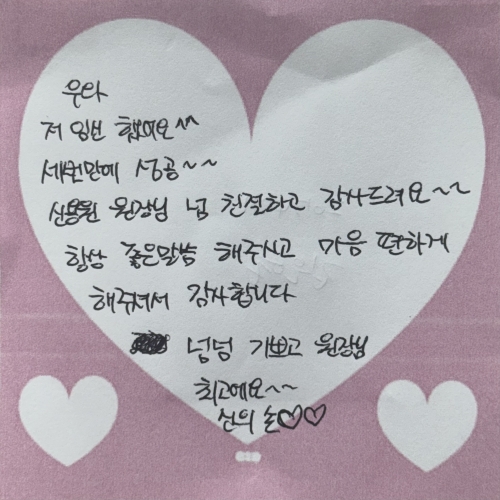 우와
저 임신 했어요^^
세번만에 성공~~
신용원 원장님 넘 친절하고 감사드려요~~
항상 좋은말씀 해주시고 마음 편하게
해주셔서 감사합니다
넘넘 기쁘고 원장님
최고에요~~
신의 손♡♡